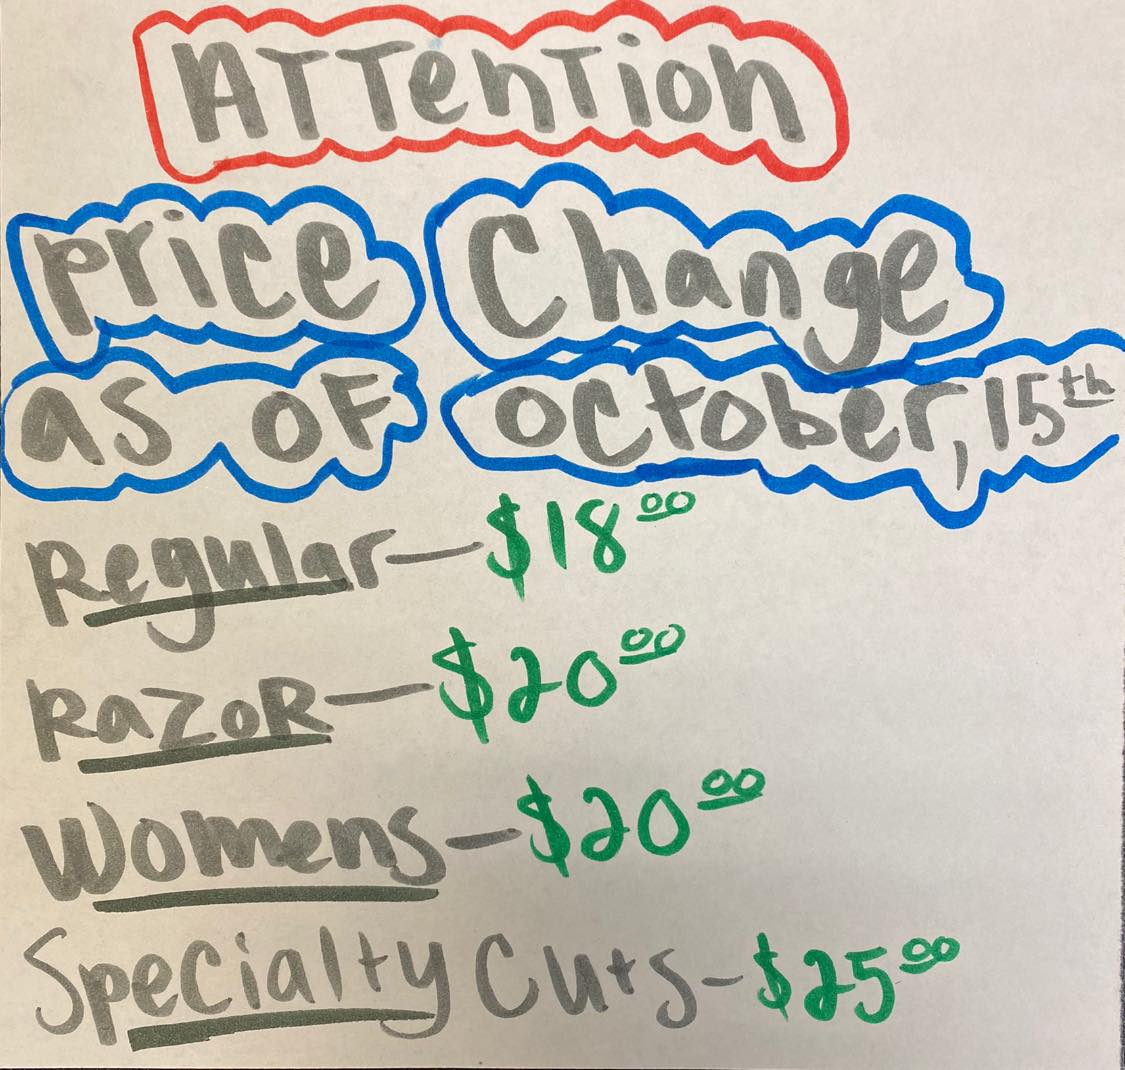 ATTenTion
price Change
as oF october, 15th
Regular — $18.00
RazoR — $20.00
Womens — $20.00
Specialty Cuts - $25.00